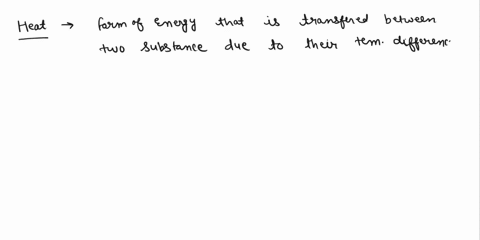 Heat → form of energy that is transfered between
two substance due to their tem. differenc.